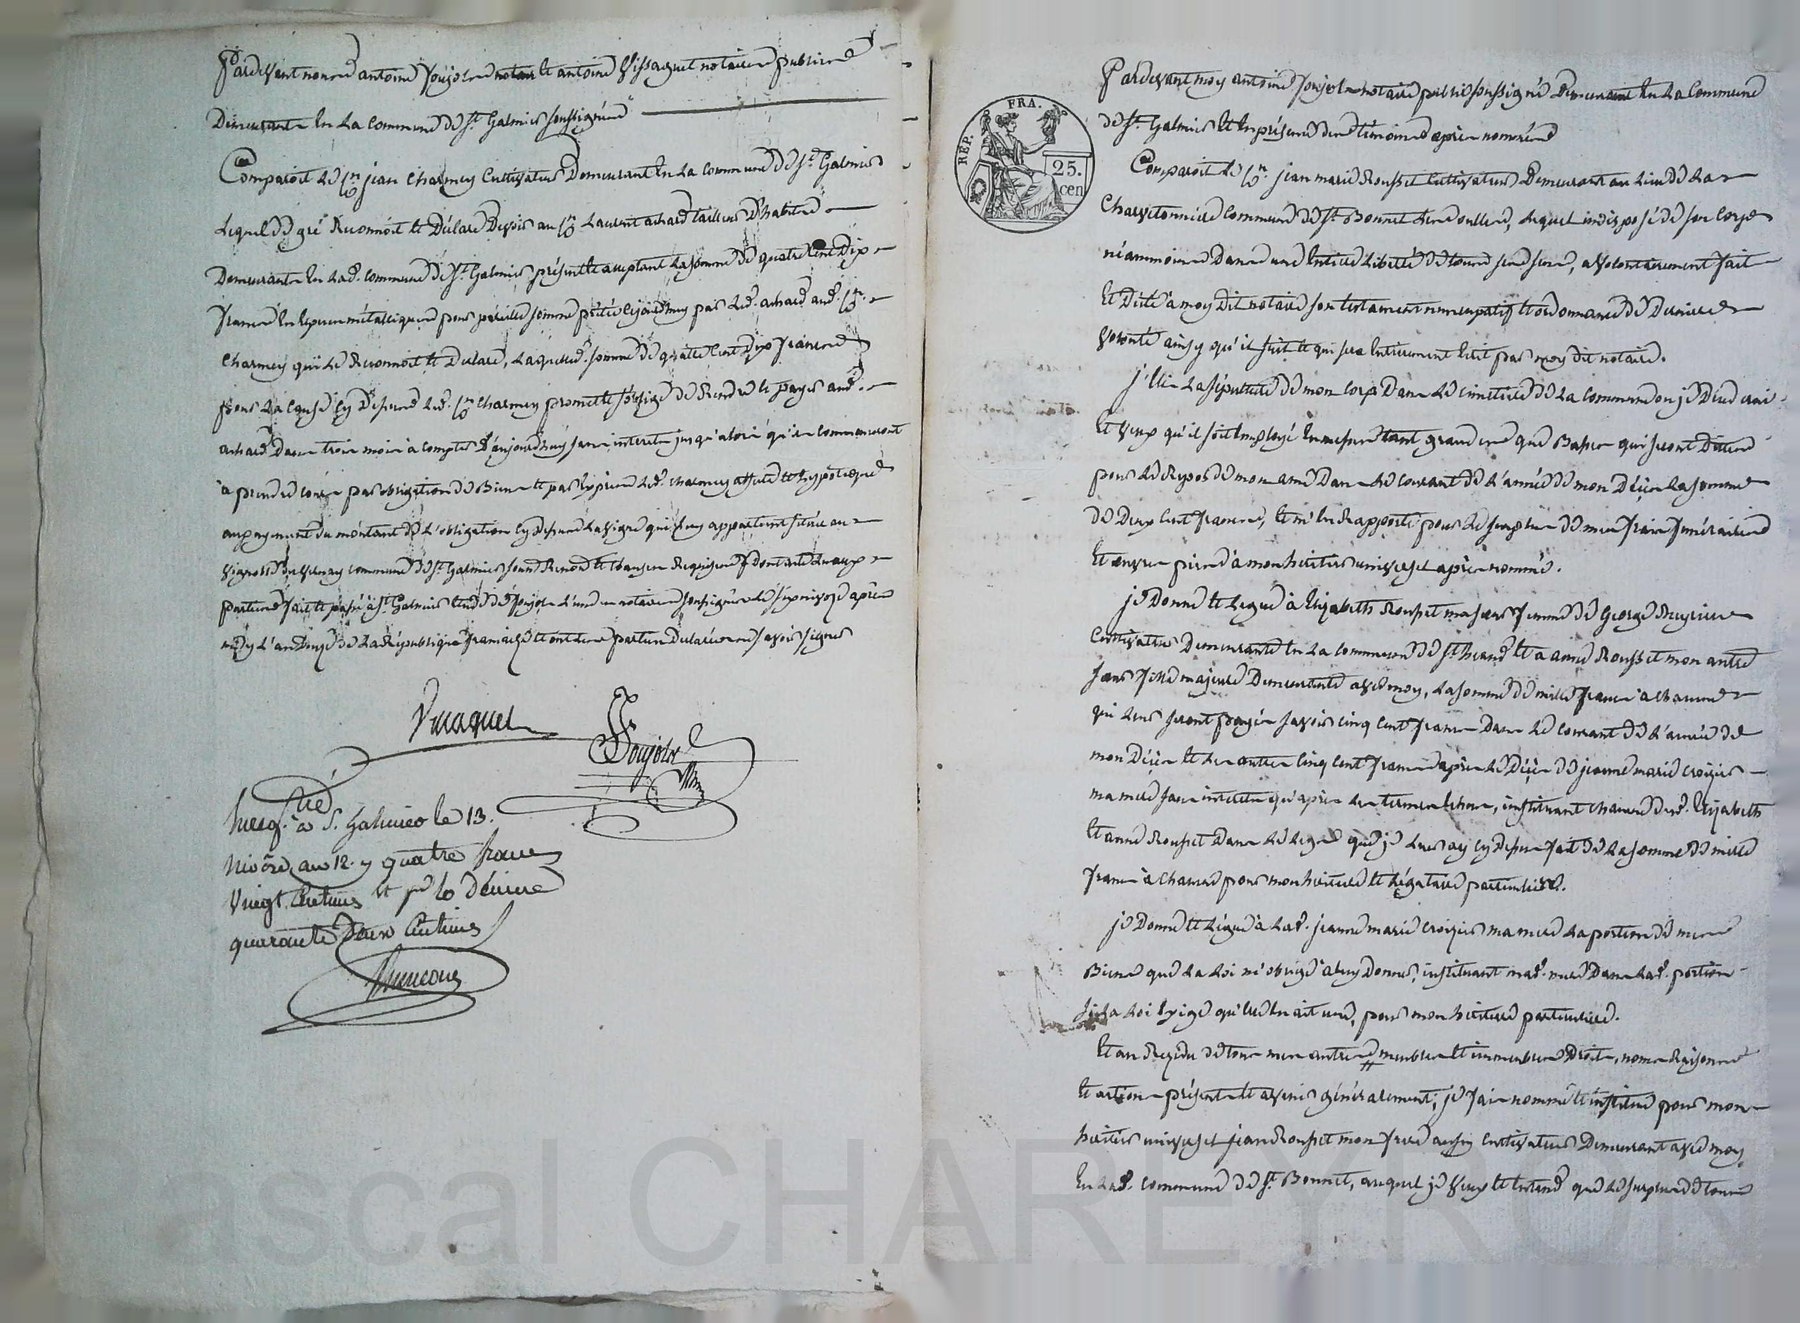 Pardevant nous antoine Poujol notaire et antoine Vissaguet notaires publics
Demeurants en la commune de St. Galmier soussignés
Comparoit le Cn jean Charmey Cultivateur Demeurant en la commune de St. Galmier
Lequel de gré Reconnoit et Déclare Devoir au Cn Laurent achard tailleur d'habits
Demeurant en lad. commune de St. Galmier présent et acceptant la somme de quatre cent Dix
francs en espèces métalliques pour pareille somme prêtée cejourd'huy par led. achard aud. Cn.
Charmey qui le Reconnoit et Déclare, laquelle somme de quatre cent Dix francs
pour la cause cy Dessus led. Cn Charmey promet et s'oblige de Rendre et payer aud.
achard Dans trois mois à compter d'aujourd'huy sans interets jusqu'alors qu'ils commenceront
à prendre cours par obligation de Biens et par exprès led. charmey affecte et hypotèque
au payement du montant de l'obligation cy dessus la vigne qui luy appartient située au
vignoble du commune de St. Galmier
parties fait et passé à St. Galmier étude de Poujol l'un des notaires soussignés le six nivose après
midy l'an Douze de la République française et ont les parties Déclaré ne savoir signer
Vissaguet
Poujol
Nre
Enreg. tré à St. Galmier le 13.
Nivôse an 12. Rç quatre francs
Vingt Centimes et pr le Décime
quarante Deux Centimes
REP. FRA.
25. cen
Pardevant moy antoine Poujol notaire public soussigné Demeurant en la Commune
de St. Galmier et en présence des témoins après nommés
Comparoit le Cn. jean marie Rousset Cultivateur Demeurant au lieu de la
Charvetonnière Commune de St. Bonnet les oulles, lequel indisposé de son corps
néanmoins Dans une entière liberté de tous ses sens, a volontairement fait
Et Dicté à moy Dit notaire son testament nuncupatif et ordonnance de Dernière
volonté ainsy qu'il suit et qui sera entièrement écrit par moy dit notaire.
j'élis la sépulture de mon corps Dans le cimetière de la commune ou je Décéderai
Et veux qu'il soit employé en messes tant grandes que Basses qui seront Dittes
pour le Repos de mon ame Dans le courant de l'année de mon Décès la somme
de Deux Cent francs, et m'en Rapporte pour le surplus de mes frais funéraires
Et œuvres pies à mon héritier universel après nommé.
je Donne et Lègue à Elizabeth Rousset ma sœur femme de George
Cultivateur Demeurants en la commune de St. héand et à anne Rousset mon autre
sœur fille majeure Demeurante avec moy, la somme de mille francs à chacune
qui leur seront payés savoir cinq cent francs Dans le courant de l'année de
mon Décès et les autres cinq cent francs après le Décès de jeanne marie Crozier
ma mère sans interets qu'après les termes échus, instituant chacune desd. Elizabeth
Et anne Rousset Dans le legs que je leur ay cy dessus fait de la somme de mille
francs à chacune pour mon héritière et légataire particulière.
je Donne et Lègue à lad. jeanne marie Crozier ma mère la portion de mes
Biens que la loi m'oblige à luy Donner, instituant mad. mère Dans lad. portion
si la loi exige qu'elle en ait une, pour mon héritière particulière.
Et au Résidu de tous mes autres meubles et immeubles Droits, noms Raisons
Et actions présents et avenir généralement, je fais nomme et institue pour mon
héritier universel jean Rousset mon frère aussy Cultivateur Demeurant avec moy
En lad. commune de St. Bonnet, auquel je veux et entend que le surplus de tous
Pascal CHAREYRON